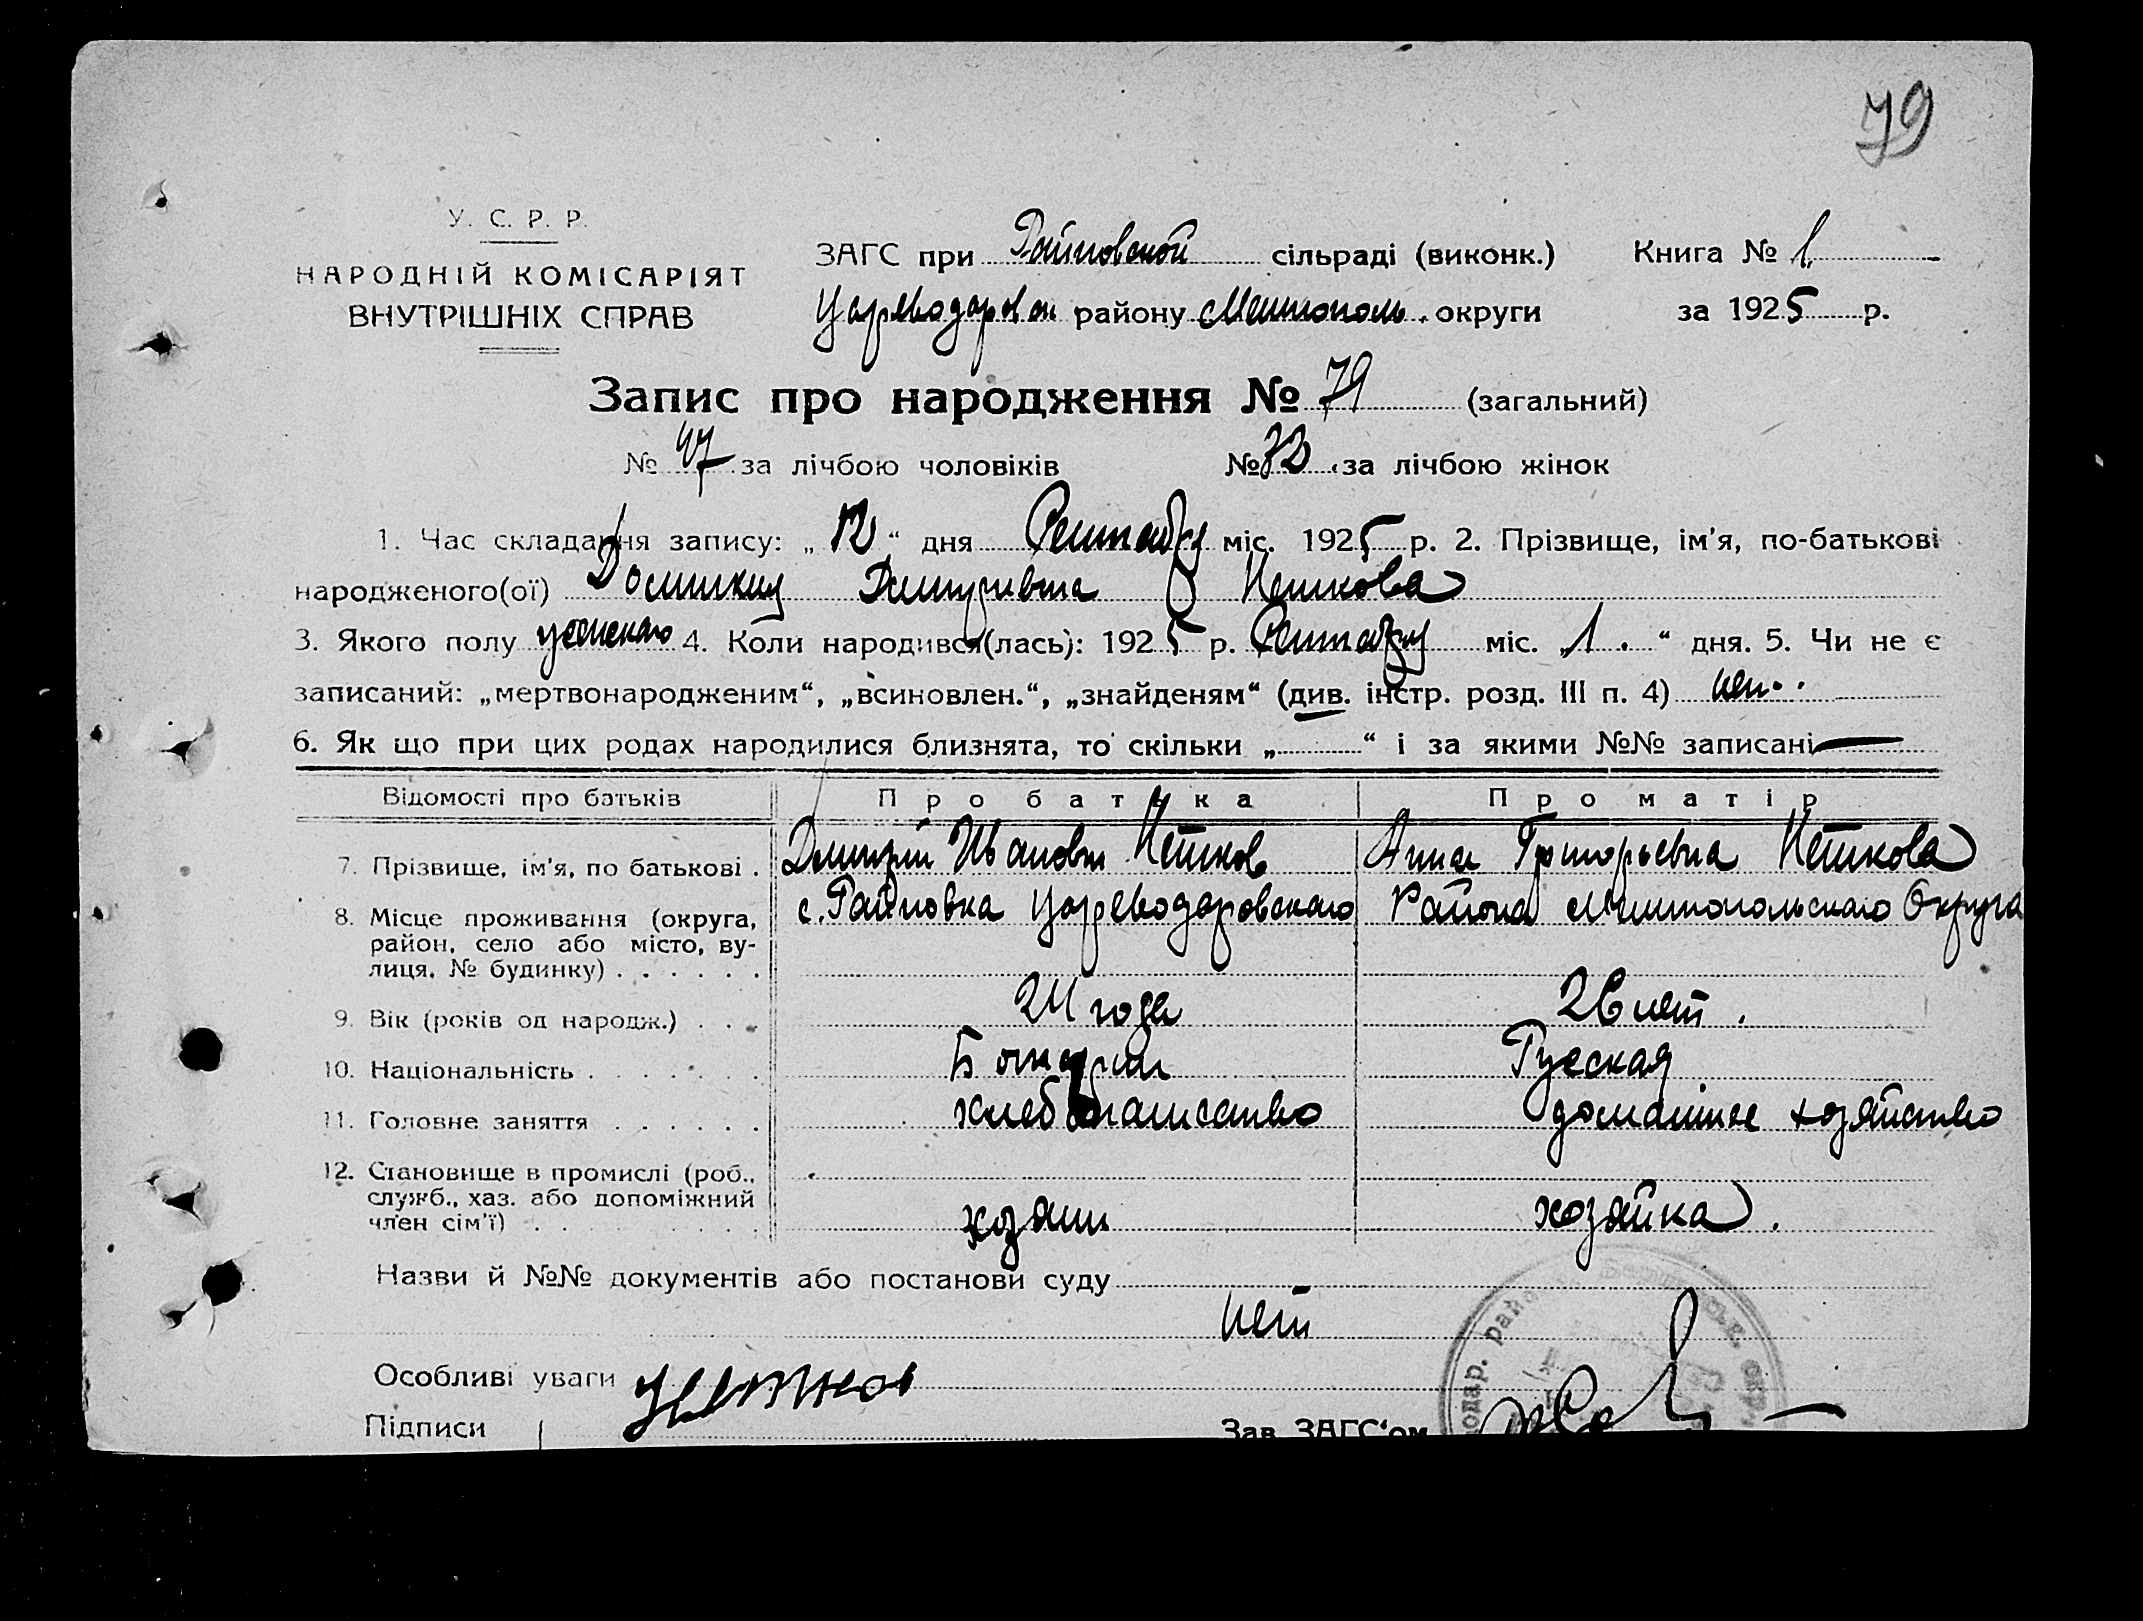 79
У. С. Р. Р.
НАРОДНІЙ КОМІСАРІЯТ
ВНУТРІШНІХ СПРАВ
ЗАГС при Райновской сільраді (виконк.) Книга № 1
району округи за 1925 р.
Запис про народження № 79 (загальний)
№ 47 за лічбою чоловіків № 32 за лічбою жінок
1. Час складання запису: „12“ дня Сентября міс. 1925 р. 2. Прізвище, ім'я, по-батькові
народженого(ої) Нешкова
3. Якого полу женскаго 4. Коли народився(лась): 1925 р. Сентября міс. „1“ дня. 5. Чи не є
записаний: „мертвонародженим“, „всиновлен.“, „знайденям“ (див. інстр. розд. III п. 4) нет
6. Як що при цих родах народилися близнята, то скільки „ “ і за якими №№ записані —
Відомості про батьків Про батька Про матір
7. Прізвище, ім'я, по батькові . Дмитрий Иванович Нешков Анна Григорьевна Нешкова
8. Місце проживання (округа, с. Райновка Цареводаровскаго Района Мелитопольскаго Округа
район, село або місто, ву-
лиця, № будинку) . . . . . .
9. Вік (років од народж.) . . . 24 года 26 лет.
10. Національність . . . . . Русская
11. Головне заняття . . . . . . хлебопашество домашнее хозяйство
12. Становище в промислі (роб.,
служб., хаз. або допоміжний
член сім'ї) . . хозяин хозяйка.
Назви й №№ документів або постанови суду
нет
Особливі уваги
Підписи Зав. ЗАГС'ом